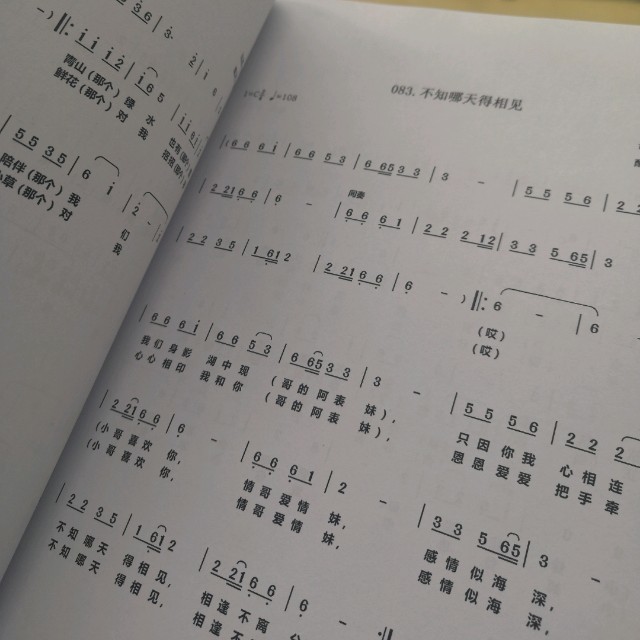 3 6 | 3·
–) ‖: i i i 2 | i 6 5
青山(那个)绿 水
鲜花(那个)对 我
5 5 3 5 | 6 i | 2 –
陪伴(那个)我 们
草(那个)对 我
083.不知哪天得相见
♩=108
(6 6 6 i | 6 6 5 3 | 6 6 5 3 3 | 3 – | 5 5 5 6 | 2 2
| 2 2 1 6 6 | 6 –
间奏
| 6 6 6 1 | 2 2 2 2 1 2 | 3 3 5 6 5 | 3
| 2 2 3 5 | 1 6 1 2 | 2 2 1 6 6 | 6 – ) ‖: 6 – | 6
(哎)
(哎)
| 6 6 6 i | 6 6 5 3 | 6 6 5 3 3 | 3 – | 5 5 5 6 | 2 2 2
我们身影 湖中现 (哥的阿表 妹), 只因你我 心相连
心心相印 我和你 (哥的阿表 妹), 恩恩爱爱 把手牵
| 2 2 1 6 6 | 6 – | 6 6 6 1 | 2 – | 3 3 5 6 5 | 3 –
(小哥喜欢 你, 情哥爱情 妹, 感情似海 深,
(小哥喜欢 你, 情哥爱情 妹, 感情似海 深,
| 2 2 3 5 | 1 6 1 2 | 2 2 1 6 6 | 6 – :‖
不知哪天 得相见, 相逢不离
不知愿天 得相见, 相逢不